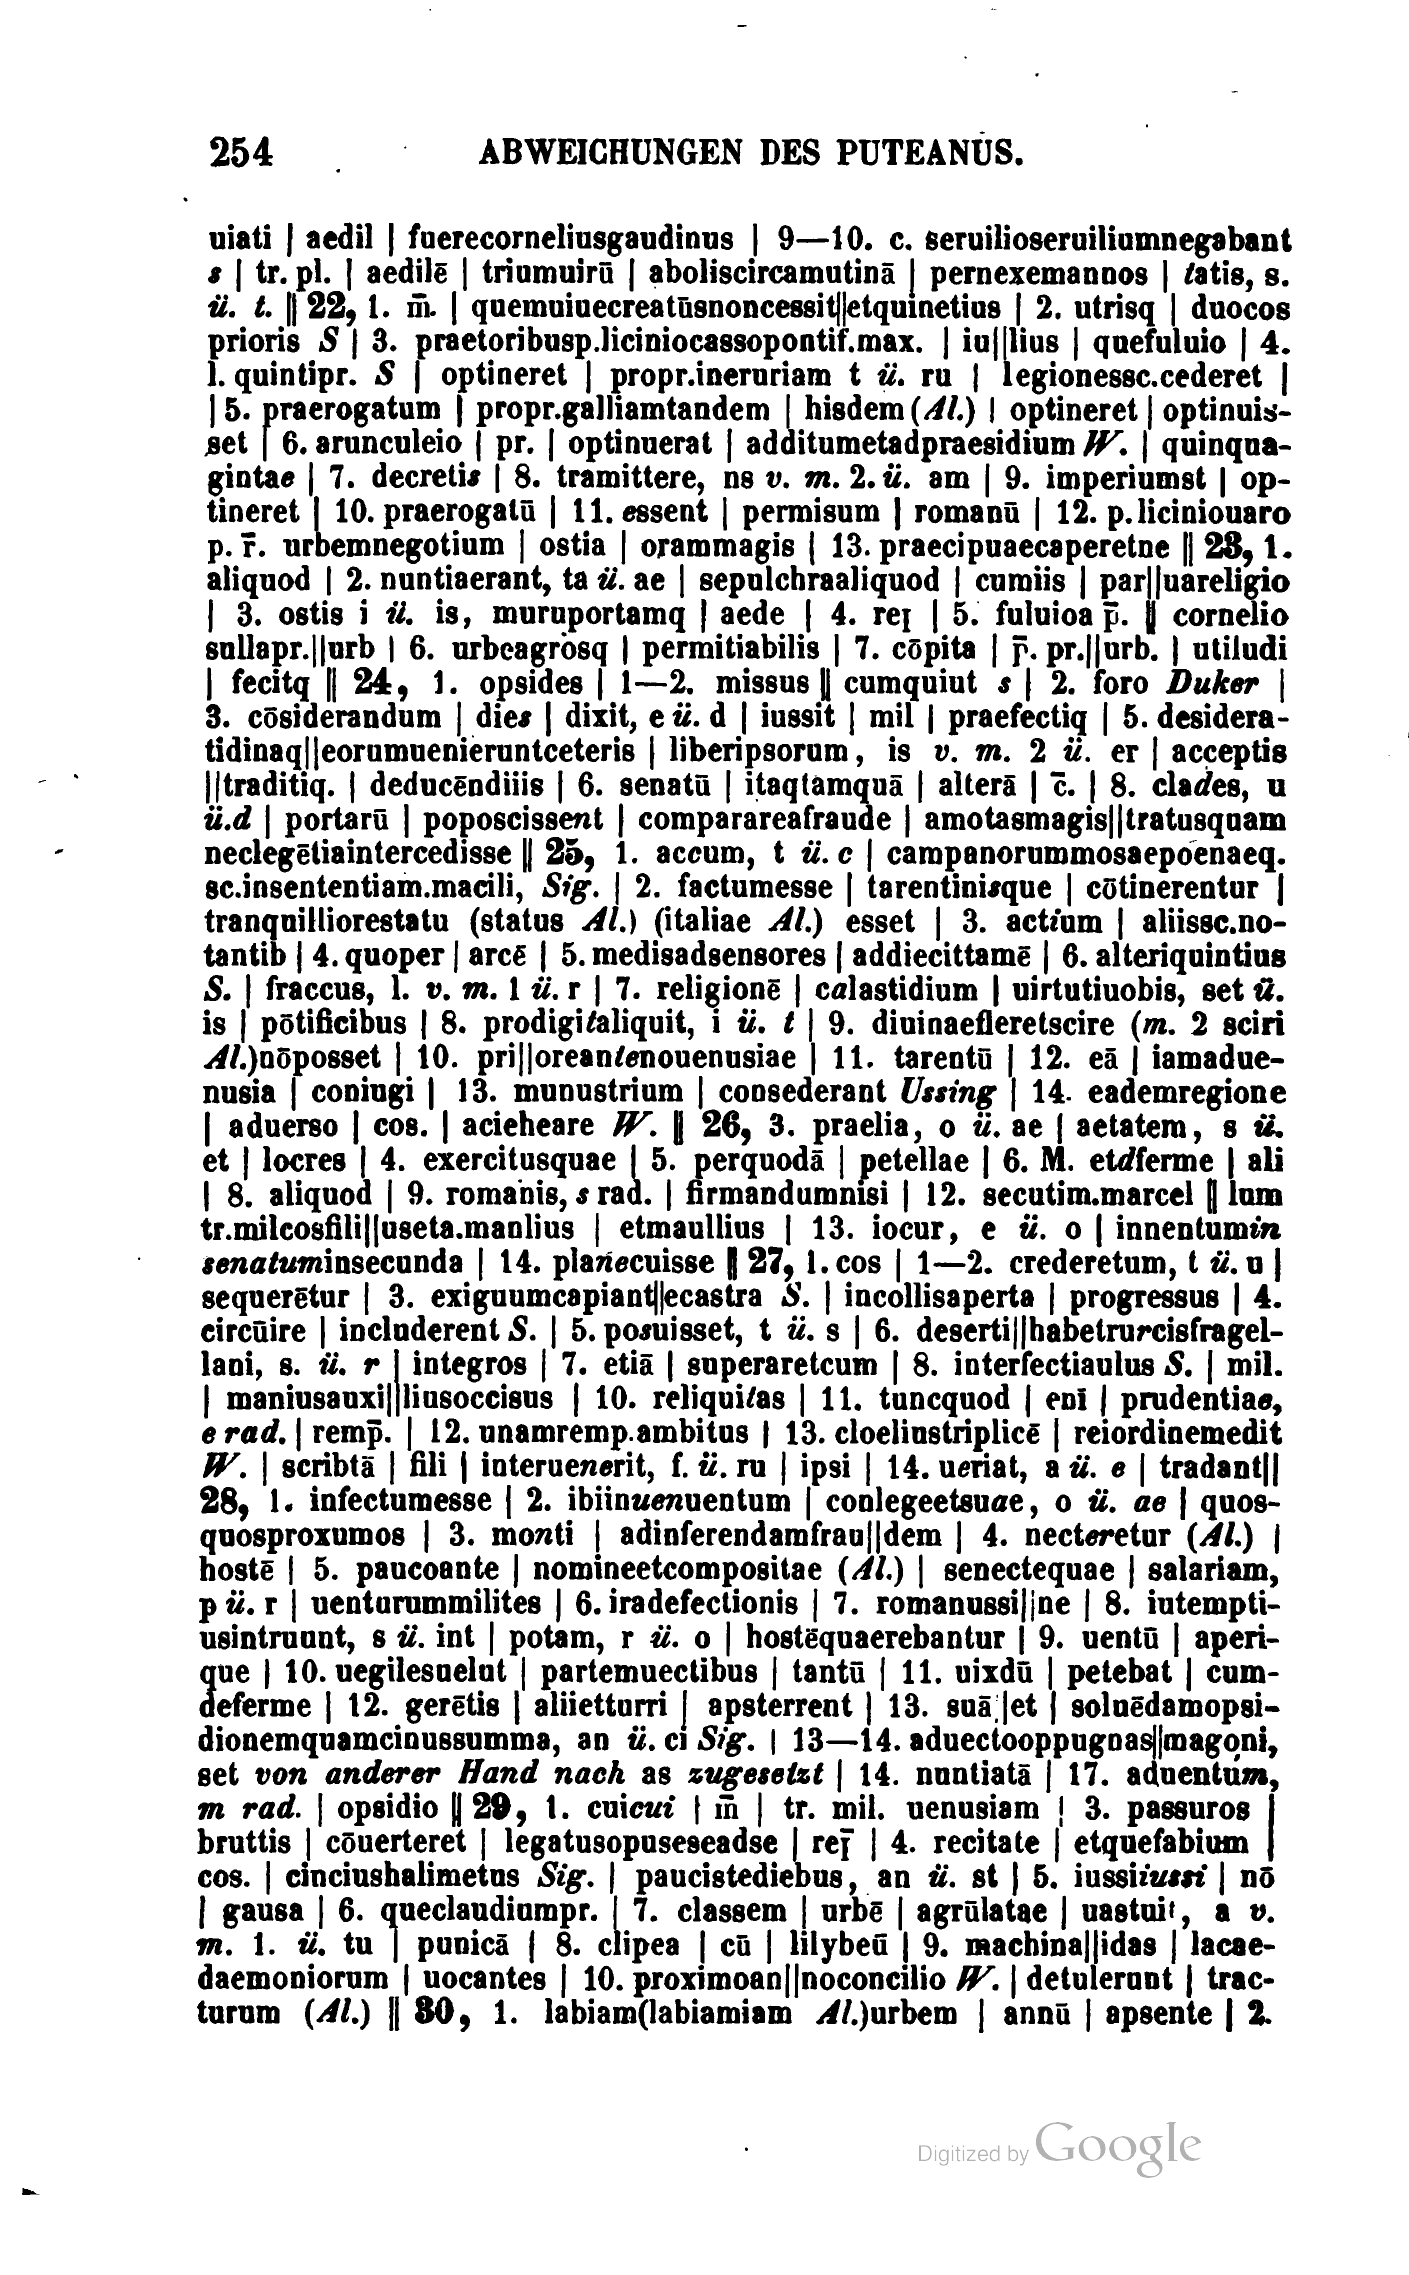 254 ABWEICHUNGEN DES PUTEANUS.
uiati | aedil | fuerecorneliusgaudinus | 9—10. c. seruilioseruiliumnegabant
s | tr. pl. | aedilē | triumuirū | aboliscircamutinā | pernexemannos | tatis, s.
ü. t. || 22, 1. m̄. | quemuiuecreatūsnoncessit||etquinetius | 2. utrisq | duocos
prioris S | 3. praetoribusp.liciniocassopontif.max. | iu||lius | quefuluio | 4.
l. quintipr. S | optineret | propr.ineruriam t ü. ru | legionessc.cederet |
| 5. praerogatum | propr.galliamtandem | hisdem (Al.) | optineret | optinuis-
set | 6. arunculeio | pr. | optinuerat | additumetadpraesidium W. | quinqua-
gintae | 7. decretis | 8. tramittere, ns v. m. 2. ü. am | 9. imperiumst | op-
tineret | 10. praerogatū | 11. essent | permisum | romanū | 12. p. liciniouaro
p. r̄. urbemnegotium | ostia | orammagis | 13. praecipuaecaperetne || 23, 1.
aliquod | 2. nuntiaerant, ta ü. ae | sepulchraaliquod | cumiis | par||uareligio
| 3. ostis i ü. is, muruportamq | aede | 4. reı | 5. fuluioa p̄. || cornelio
sullapr.||urb | 6. urbeagrosq | permitiabilis | 7. cōpita | p̄. pr.||urb. | utiludi
| fecitq || 24, 1. opsides | 1—2. missus || cumquiut s | 2. foro Duker |
3. cōsiderandum | dies | dixit, e ü. d | iussit | mil | praefectiq | 5. desidera-
tidinaq||eorumuenieruntceteris | liberipsorum, is v. m. 2 ü. er | acceptis
||traditiq. | deducēndiiis | 6. senatū | itaqtamquā | alterā | c̄. | 8. clades, u
ü. d | portarū | poposcissent | comparareafraude | amotasmagis||tratusquam
neclegētiaintercedisse || 25, 1. accum, t ü. c | campanorummosaepoenaeq.
sc.insententiam.macili, Sig. | 2. factumesse | tarentinisque | cōtinerentur |
tranquilliorestatu (status Al.) (italiae Al.) esset | 3. actium | aliissc.no-
tantib | 4. quoper | arcē | 5. medisadsensores | addiecittamē | 6. alteriquintius
S. | fraccus, l. v. m. 1 ü. r | 7. religionē | calastidium | uirtutiuobis, set ü.
is | pōtificibus | 8. prodigitaliquit, i ü. t | 9. diuinaefleretscire (m. 2 sciri
Al.)nōposset | 10. pri||oreantenouenusiae | 11. tarentū | 12. eā | iamadue-
nusia | coniugi | 13. munustrium | consederant Ussing | 14. eademregione
| aduerso | cos. | acieheare W. || 26, 3. praelia, o ü. ae | aetatem, s ü.
et | locres | 4. exercitusquae | 5. perquodā | petellae | 6. M. etdferme | ali
| 8. aliquod | 9. romanis, s rad. | firmandumnisi | 12. secutim.marcel || lum
tr.milcosfili||useta.manlius | etmaullius | 13. iocur, e ü. o | innentumin
senatuminsecunda | 14. planecuisse || 27, 1. cos | 1—2. crederetum, t ü. u |
sequerētur | 3. exiguumcapiant||ecastra S. | incollisaperta | progressus | 4.
circūire | includerent S. | 5. posuisset, t ü. s | 6. deserti||habetrurcisfragel-
lani, s. ü. r | integros | 7. etiā | superaretcum | 8. interfectiaulus S. | mil.
| maniusauxi||liusoccisus | 10. reliquitas | 11. tuncquod | enī | prudentiae,
e rad. | remp̄. | 12. unamremp.ambitus | 13. cloeliustriplicē | reiordinemedit
W. | scribtā | fili | interuenerit, f. ü. ru | ipsi | 14. ueriat, a ü. e | tradant||
28, 1. infectumesse | 2. ibiinuenuentum | conlegeetsuae, o ü. ae | quos-
quosproxumos | 3. monti | adinferendamfrau||dem | 4. necteretur (Al.) |
hostē | 5. paucoante | nomineetcompositae (Al.) | senectequae | salariam,
p ü. r | uenturummilites | 6. iradefectionis | 7. romanussi||ne | 8. intempti-
usintruunt, s ü. int | potam, r ü. o | hostēquaerebantur | 9. uentū | aperi-
que | 10. uegilesuelut | partemuectibus | tantū | 11. uixdū | petebat | cum-
deferme | 12. gerētis | aliietturri | apsterrent | 13. suā.|et | soluēdamopsi-
dionemquamcinussumma, an ü. ci Sig. | 13—14. aduectooppugnas||magoni,
set von anderer Hand nach as zugesetzt | 14. nuntiatā | 17. aduentum,
m rad. | opsidio || 29, 1. cuicui | m̄ | tr. mil. uenusiam | 3. passuros |
bruttis | cōuerteret | legatusopuseseadse | rep̄ | 4. recitate | etquefabium |
cos. | cinciushalimetus Sig. | paucistediebus, an ü. st | 5. iussiiussi | nō
| gausa | 6. queclaudiumpr. | 7. classem | urbē | agrūlatae | uastuit, a v.
m. 1. ü. tu | punicā | 8. clipea | cū | lilybeū | 9. machina||idas | lacae-
daemoniorum | uocantes | 10. proximoan||noconcilio W. | detulerunt | trac-
turum (Al.) || 30, 1. labiam(labiamiam Al.)urbem | annū | apsente | 2.
Digitized by Google